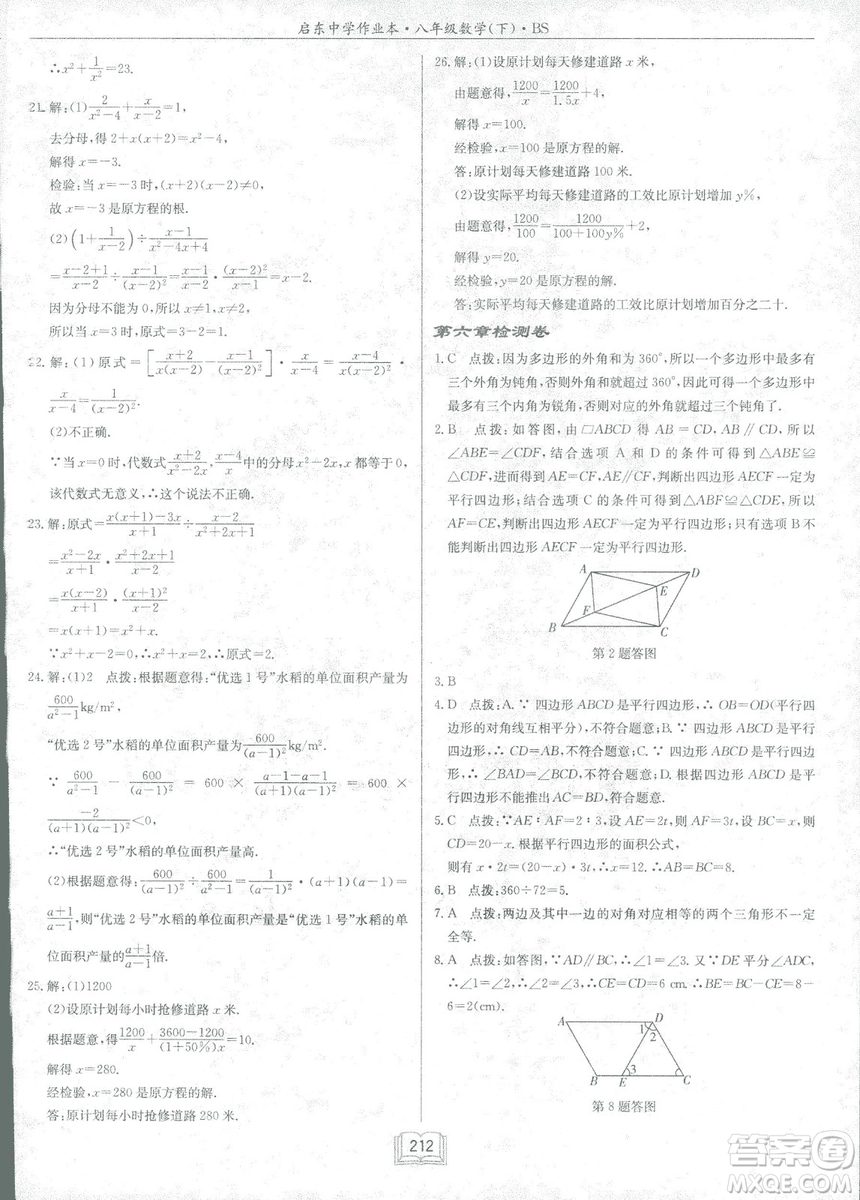 启东中学作业本·八年级数学(下)·BS
∴x²+1/x²=23.
21.解:(1)2/(x²-4)+x/(x-2)=1,
去分母,得2+x(x+2)=x²-4,
解得x=-3.
检验:当x=-3时,(x+2)(x-2)≠0,
故x=-3是原方程的根.
(2)(1+1/(x-2))÷(x-1)/(x²-4x+4)
=(x-1)/(x-2)÷(x-1)/(x-2)²=(x-1)/(x-2)·(x-2)²/(x-1)=x-2.
因为分母不能为0,所以x≠1,x≠2.
所以当x=3时,原式=1.
22.解:(1)原式=[(x+2)/(x(x-2))-(x-1)/(x-2)²]·x/(x-4)=(x-4)/(x(x-2)²)·
x/(x-4)=1/(x-2)².
(2)不正确.
∵当x=0时,代数式(x+2)/(x²-2x),(x-4)/x中的分母x²-2x,x都等于0,
该代数式无意义,∴这个说法不正确.
23.解:原式=(x(x+1)-3x)/(x+1)÷(x-2)/(x²+2x+1)
=(x²-2x)/(x+1)÷(x-2)/(x+1)²
=x(x-2)/(x+1)·(x+1)²/(x-2)
=x(x+1)=x²+x.
∵x²+x-2=0,∴x²+x=2,∴原式=2.
24.解:(1)2 点拨:根据题意得:“优选1号”水稻的单位面积产量为
600/(a²-1)kg/m²,
“优选2号”水稻的单位面积产量为600/(a-1)²kg/m².
∵ 600/(a²-1) - 600/(a-1)² = 600 × (a-1-a-1)/((a+1)(a-1)²) = 600 ×
-2/((a+1)(a-1)²)<0,
∴“优选2号”水稻的单位面积产量高.
(2)根据题意得:600/(a-1)²÷600/(a²-1)=600/(a-1)²·(a+1)(a-1)/600=
(a+1)/(a-1),则“优选2号”水稻的单位面积产量是“优选1号”水稻的单
位面积产量的(a+1)/(a-1)倍.
25.解:(1)1200
(2)设原计划每小时抢修道路x米.
根据题意,得1200/x+(3600-1200)/((1+50%)x)=10.
解得x=280.
经检验,x=280是原方程的解.
答:原计划每小时抢修道路280米.
26.解:(1)设原计划每天修建道路x米,
由题意得,1200/x=1200/1.5x+4,
解得x=100.
经检验,x=100是原方程的解.
答:原计划每天修建道路100米.
(2)设实际平均每天修建道路的工效比原计划增加y%,
由题意得,1200/100=1200/(100+100y%)+2,
解得y=20.
经检验,y=20是原方程的解.
答:实际平均每天修建道路的工效比原计划增加百分之二十.
第六章检测卷
1.C 点拨:因为多边形的外角和为360°,所以一个多边形中最多有
三个外角为钝角,否则和就超过360°,因此可得一个多边形中
最多有三个内角为锐角,否则对应的外角就超过三个钝角了.
2.B 点拨:如答图,由□ABCD得AB=CD,所以
∠ABE=∠CDF,结合选项A和D的条件可得到△ABE≌
△CDF,进而得到AE=CF,AE∥CF,判断出四边形AECF一定为
平行四边形;结合选项C的条件可得到△ABF≌△CDE,所以
AF=CE,判断出四边形AECF一定为平行四边形;只有选项B不
能判断出四边形AECF一定为平行四边形.
A
D
E
F
B
C
第2题答图
3.B
4.D 点拨:A.∵四边形ABCD是平行四边形,∴OB=OD(平行四
边形的对角线互相平分),不符合题意;B.∵四边形ABCD是平行
四边形,∴CD=AB,不符合题意;C.∵四边形ABCD是平行四边
形,∴∠BAD=∠BCD,不符合题意;D.根据四边形ABCD是平行
四边形不能推出AC=BD,符合题意.
5.C 点拨:∵AE∶AF=2∶3,设AE=2t,则AF=3t,设BC=x,则
CD=20-x.根据平行四边形的面积公式,
则有x·2t=(20-x)·3t,∴x=12.∴AB=20-BC=8.
6.B 点拨:360÷72=5.
7.A 点拨:两边及其中一边的对角对应相等的两个三角形不一定
全等.
8.A 点拨:如答图,∵AD∥BC,∴∠1=∠3.又∵DE平分∠ADC,
∴∠1=∠2,∴∠2=∠3,∴CD=CE=6cm,∴BE=BC-EC=8-
6=2(cm).
A
D
1
2
3
B
E
C
第8题答图
212